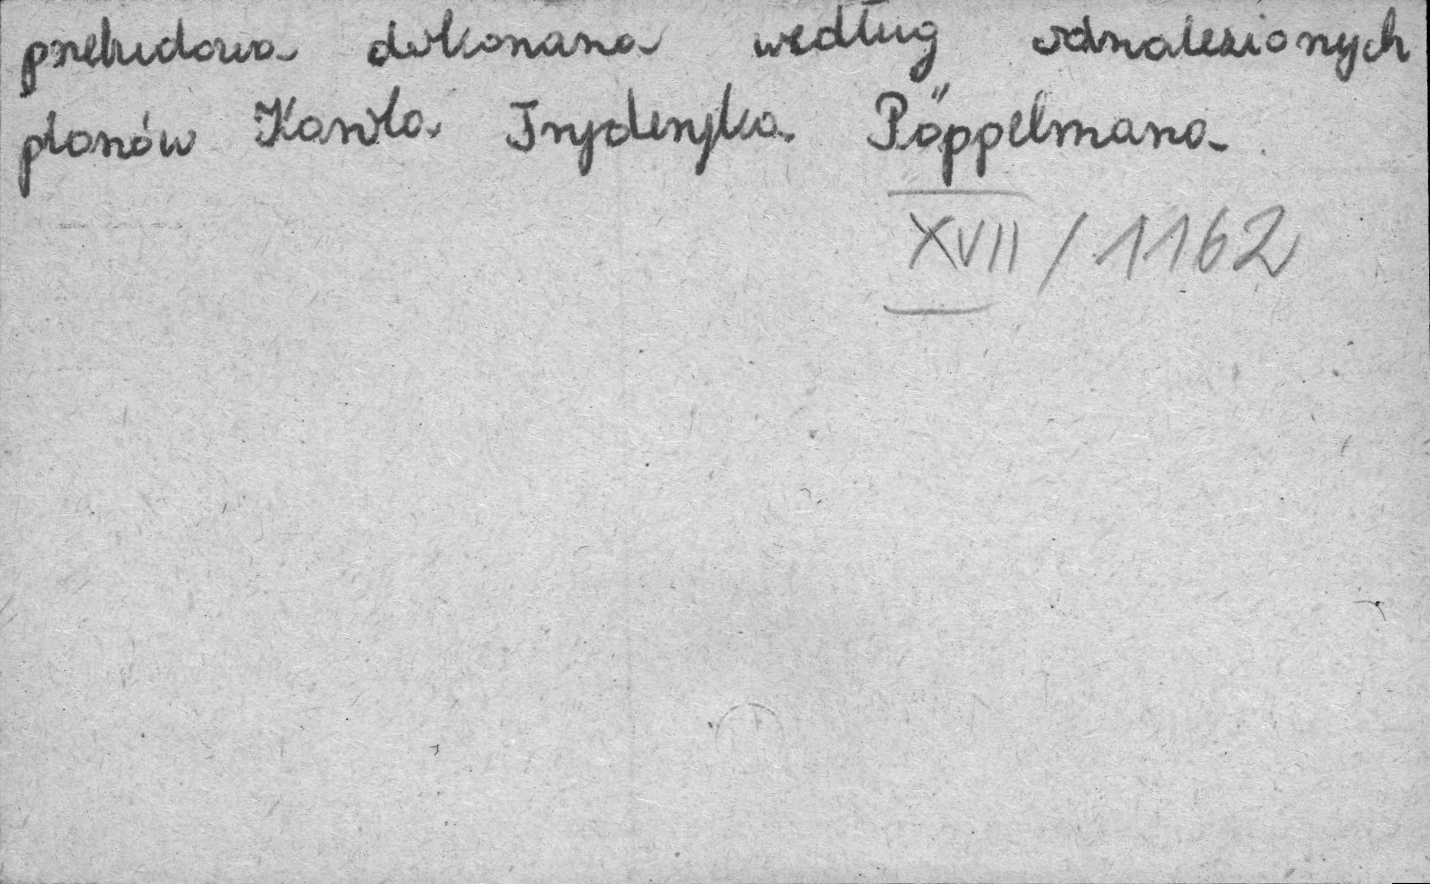 przebudowa dokonana według odnalezionych
planów Karola Fryderyka Pöppelmana
XVII / 1162